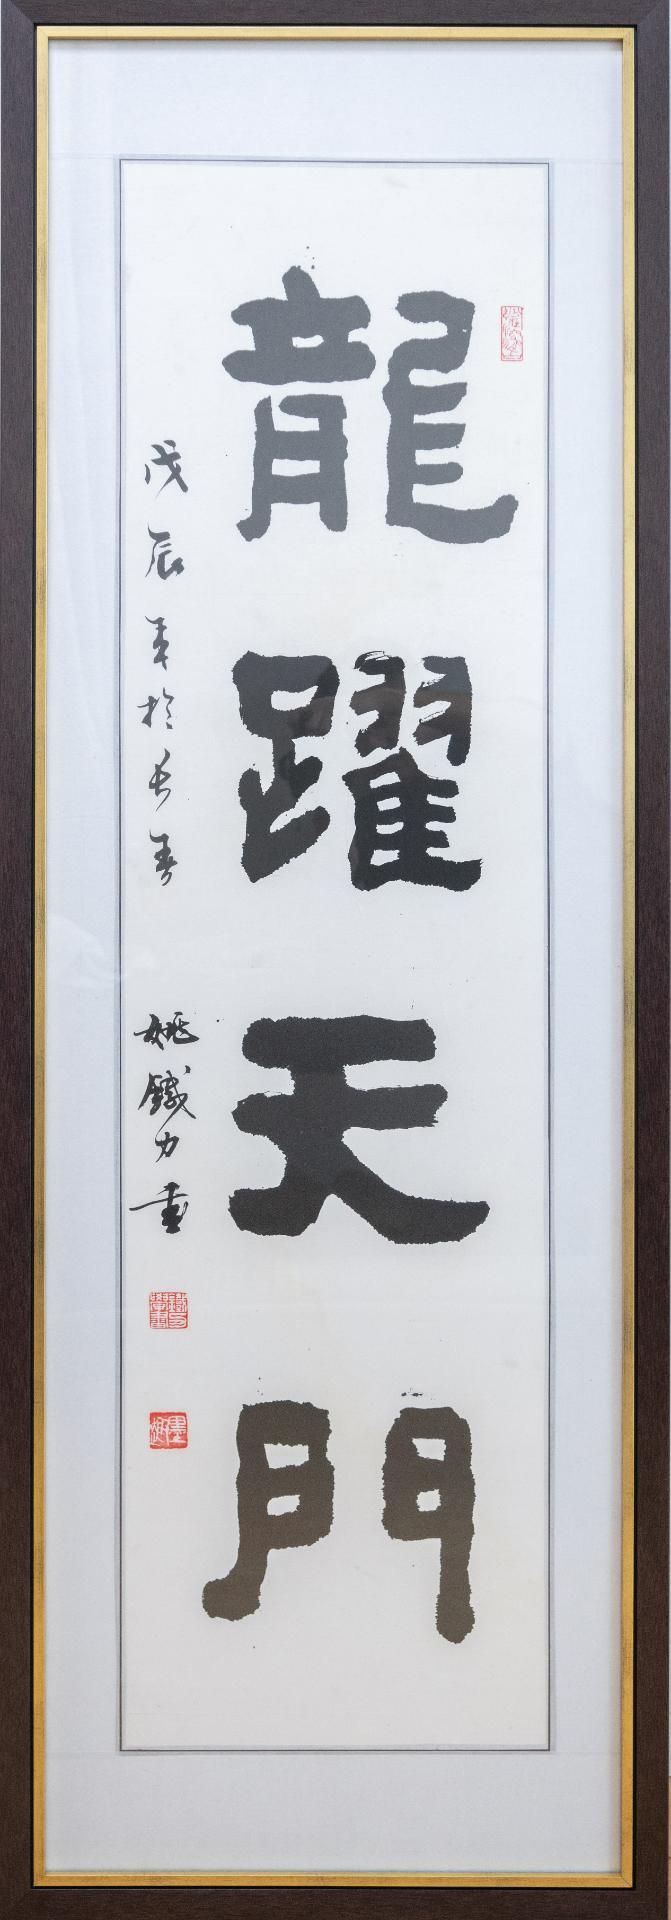 龍躍天門
戊辰年於長春
姚鐵力書